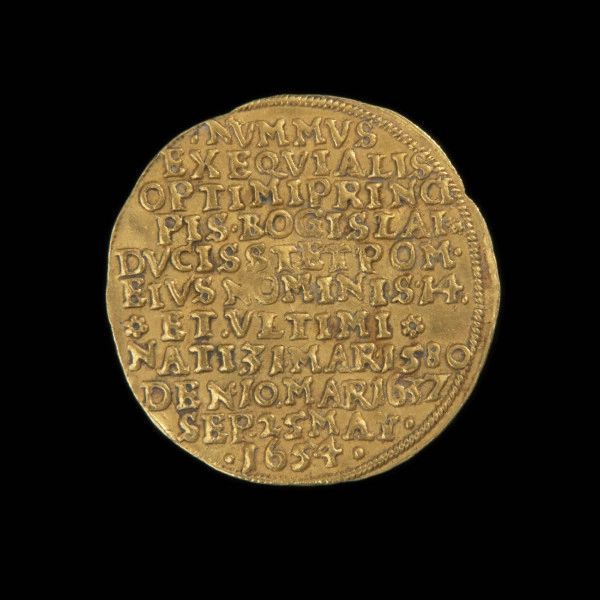 · NVMMVS
EXEQVIALIS
OPTIMI PRINCI
PIS · BOGISLAI ·
DVCIS S TET POM ·
EIVS NOMINIS · 14 ·
ET · VLTIMI
NATI 31 MAR 1580
DEN · 10 · MAR 1637
SEP 25 MAI ·
· 1654 ·